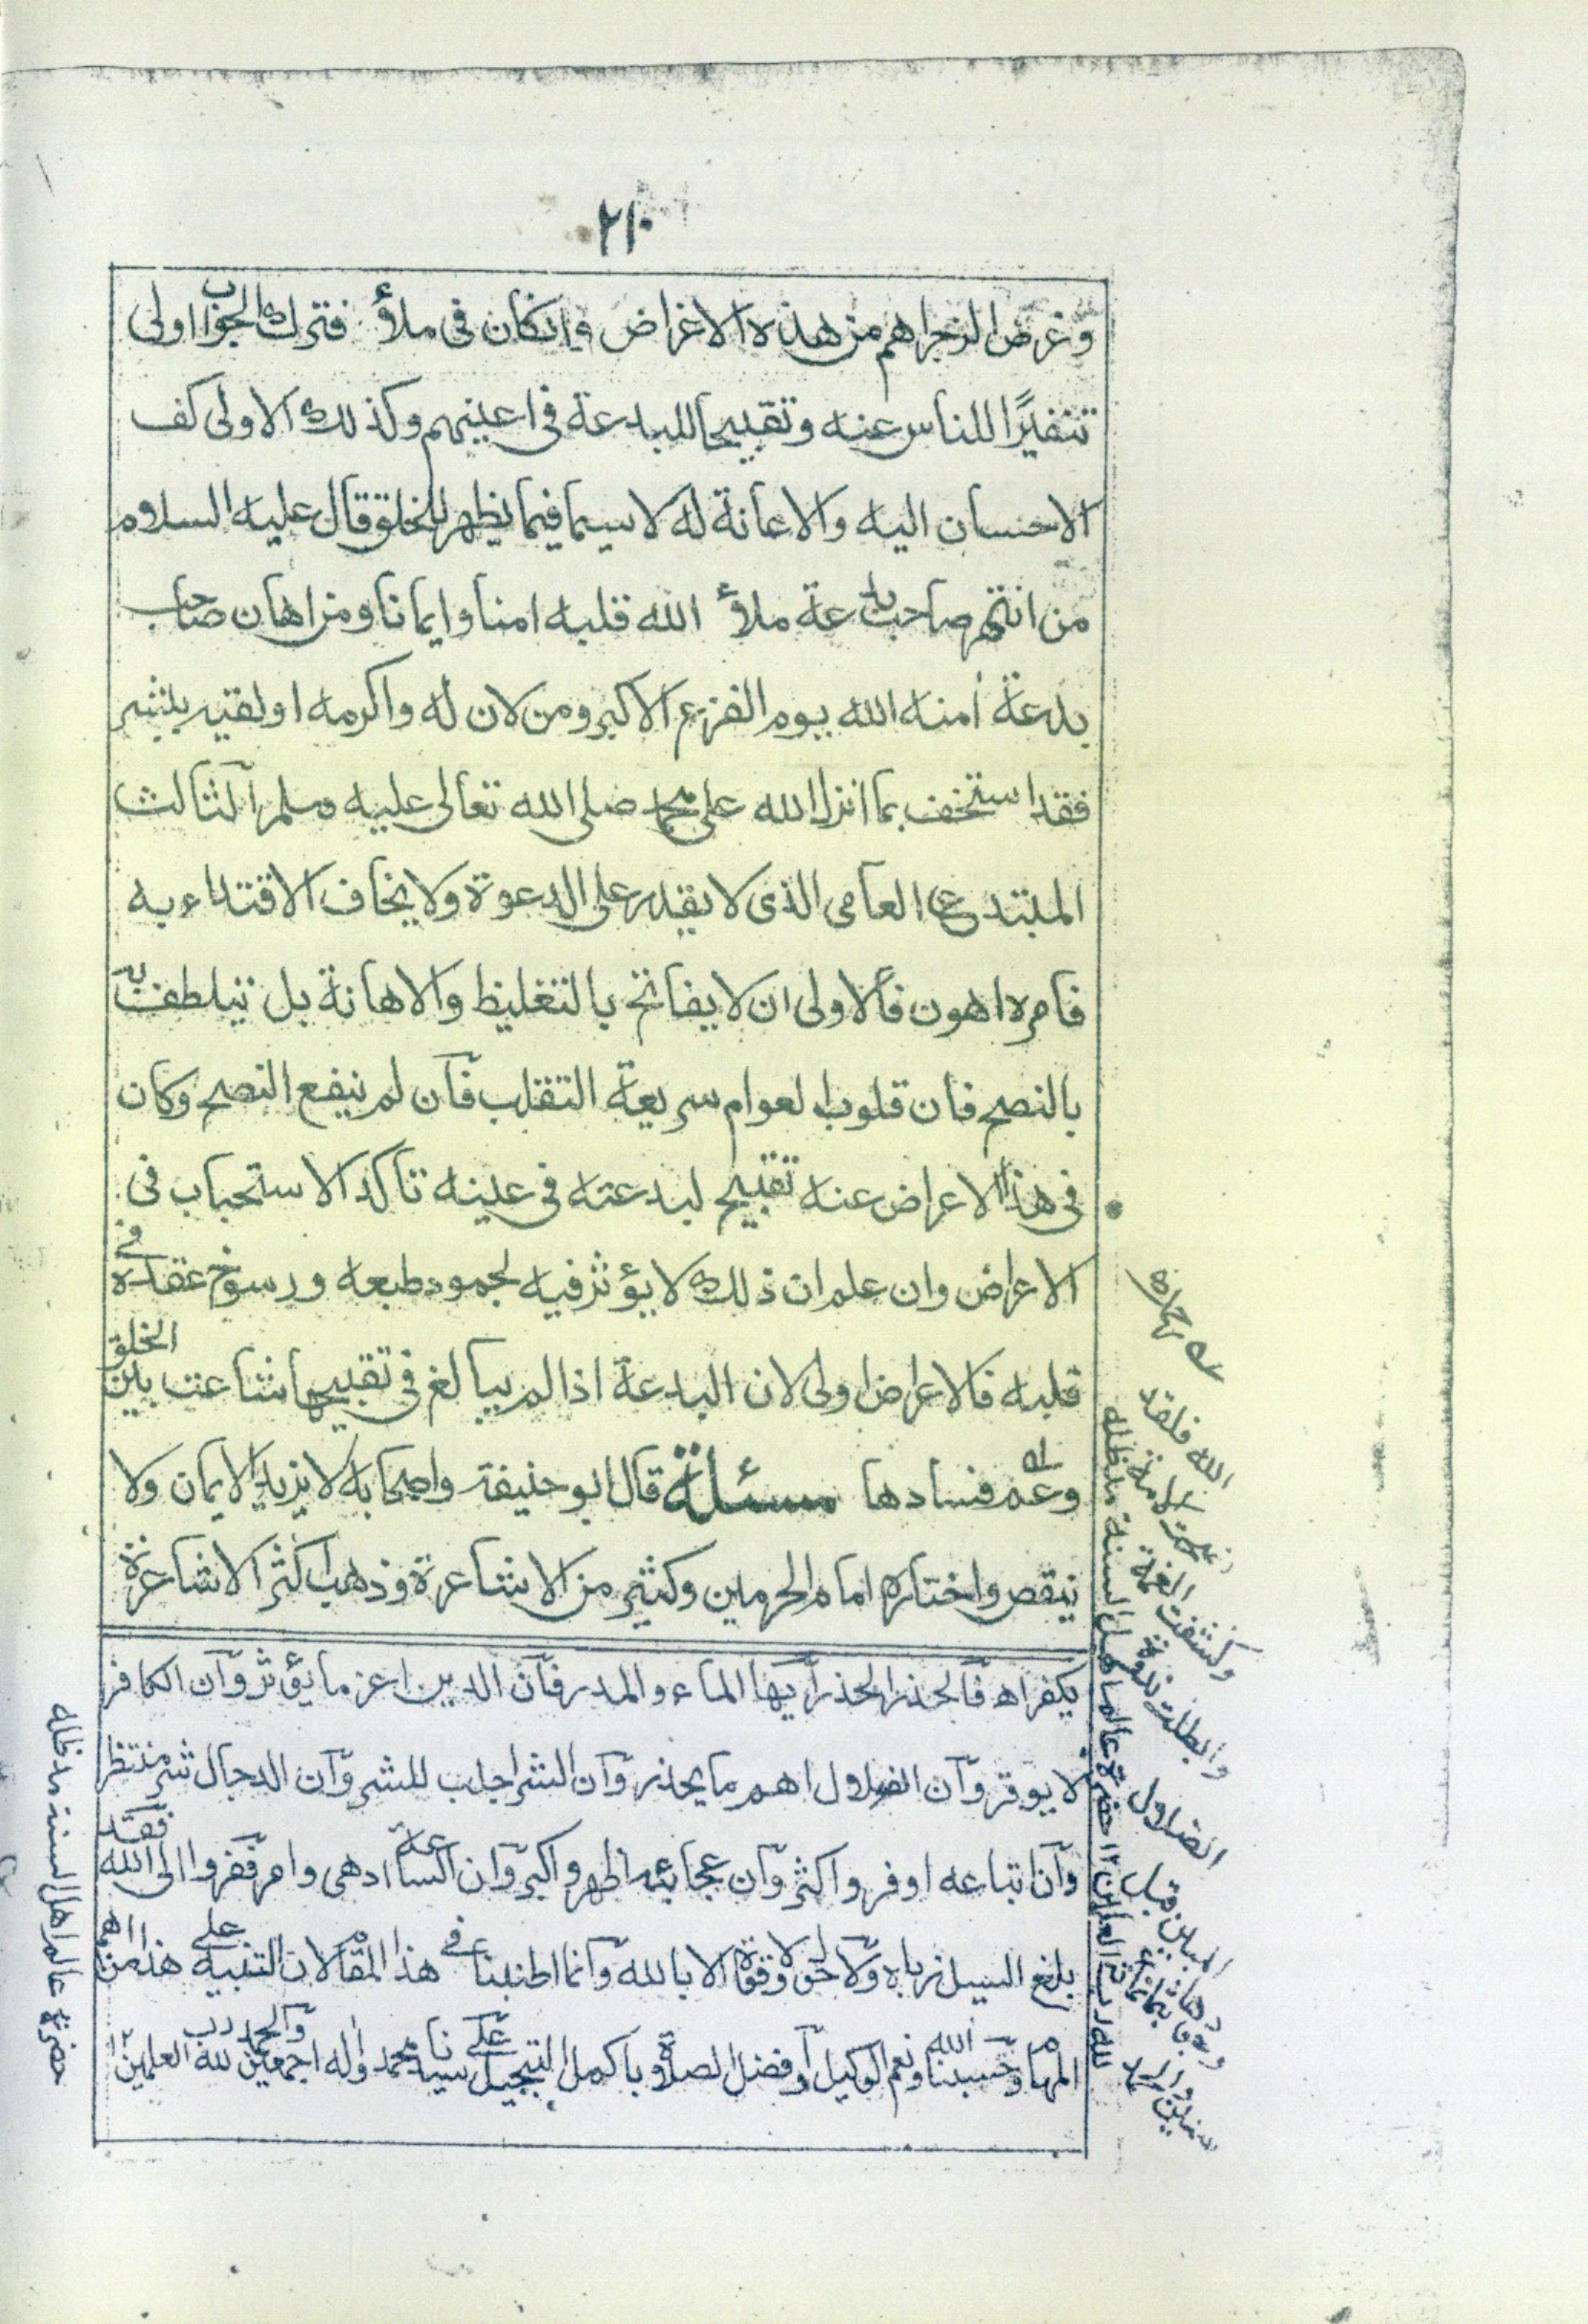 ٢١٠
وغرض الزجر اهم من هذه الاغراض وانكان فى ملأ فترك الجواب اولى
تنفيرًا للناس عنه وتقبيحا للبدعة فى اعينهم وكذلك الاولى كف
الاحسان اليه والاعانة له لاسيما فيما يظهر للخلق قال عليه السلام
من انتهر صاحب بدعة ملأ الله قلبه امنا وايمانا ومن اهان صاحب
بدعة أمنه الله يوم الفزع الاكبر ومن لان له واكرمه او لقيه ببشر
فقد استخف بما انزل الله على محمد صلى الله تعالى عليه وسلم الثالث
المبتدع العامى الذى لا يقدر على الدعوة ولا يخاف الاقتداء به
فامره اهون فالاولى ان لا يفاتح بالتغليظ والاهانة بل يتلطف به
بالنصح فان قلوب العوام سريعة التقلب فان لم ينفع النصح وكان
فى هذا الاعراض عنه تقبيح لبدعته فى عينه تاكد الاستحباب فى
الاعراض وان علم ان ذلك لا يؤثر فيه لجمود طبعه ورسوخ عقده فى
قلبه فالاعراض اولى لان البدعة اذا لم يبالغ فى تقبيحها شاعت بين الخلق
وعم فسادها مسئلة قال ابو حنيفة واصحابه لا يزيد الايمان ولا
ينقص واختاره امام الحرمين وكثير من الاشاعرة وذهب اكثر الاشاعرة
يكفراه فالحذر الحذر ايها الماء والمدر فان الدين اعز ما يؤثر وان الكافر
لا يوقر وان الضلال اهم ما يحذر وان الشر اجلب للشر وان الدجال شر منتظر
وان اتباعه اوفر واكثر وان عجائبه اظهر واكبر وان الساعة ادهى وامر ففروا الى الله فقد
بلغ السيل زباه ولا حول ولا قوة الا بالله وانما اطنبنا فى هذا المقام لان التنبيه على هذا من اهم
المهام وحسبنا الله ونعم الوكيل وافضل الصلاة باكمل التبجيل على سيدنا محمد واله اجمعين والحمد لله رب العلمين ١٢
حضرة عالم اهل السنة مد ظله